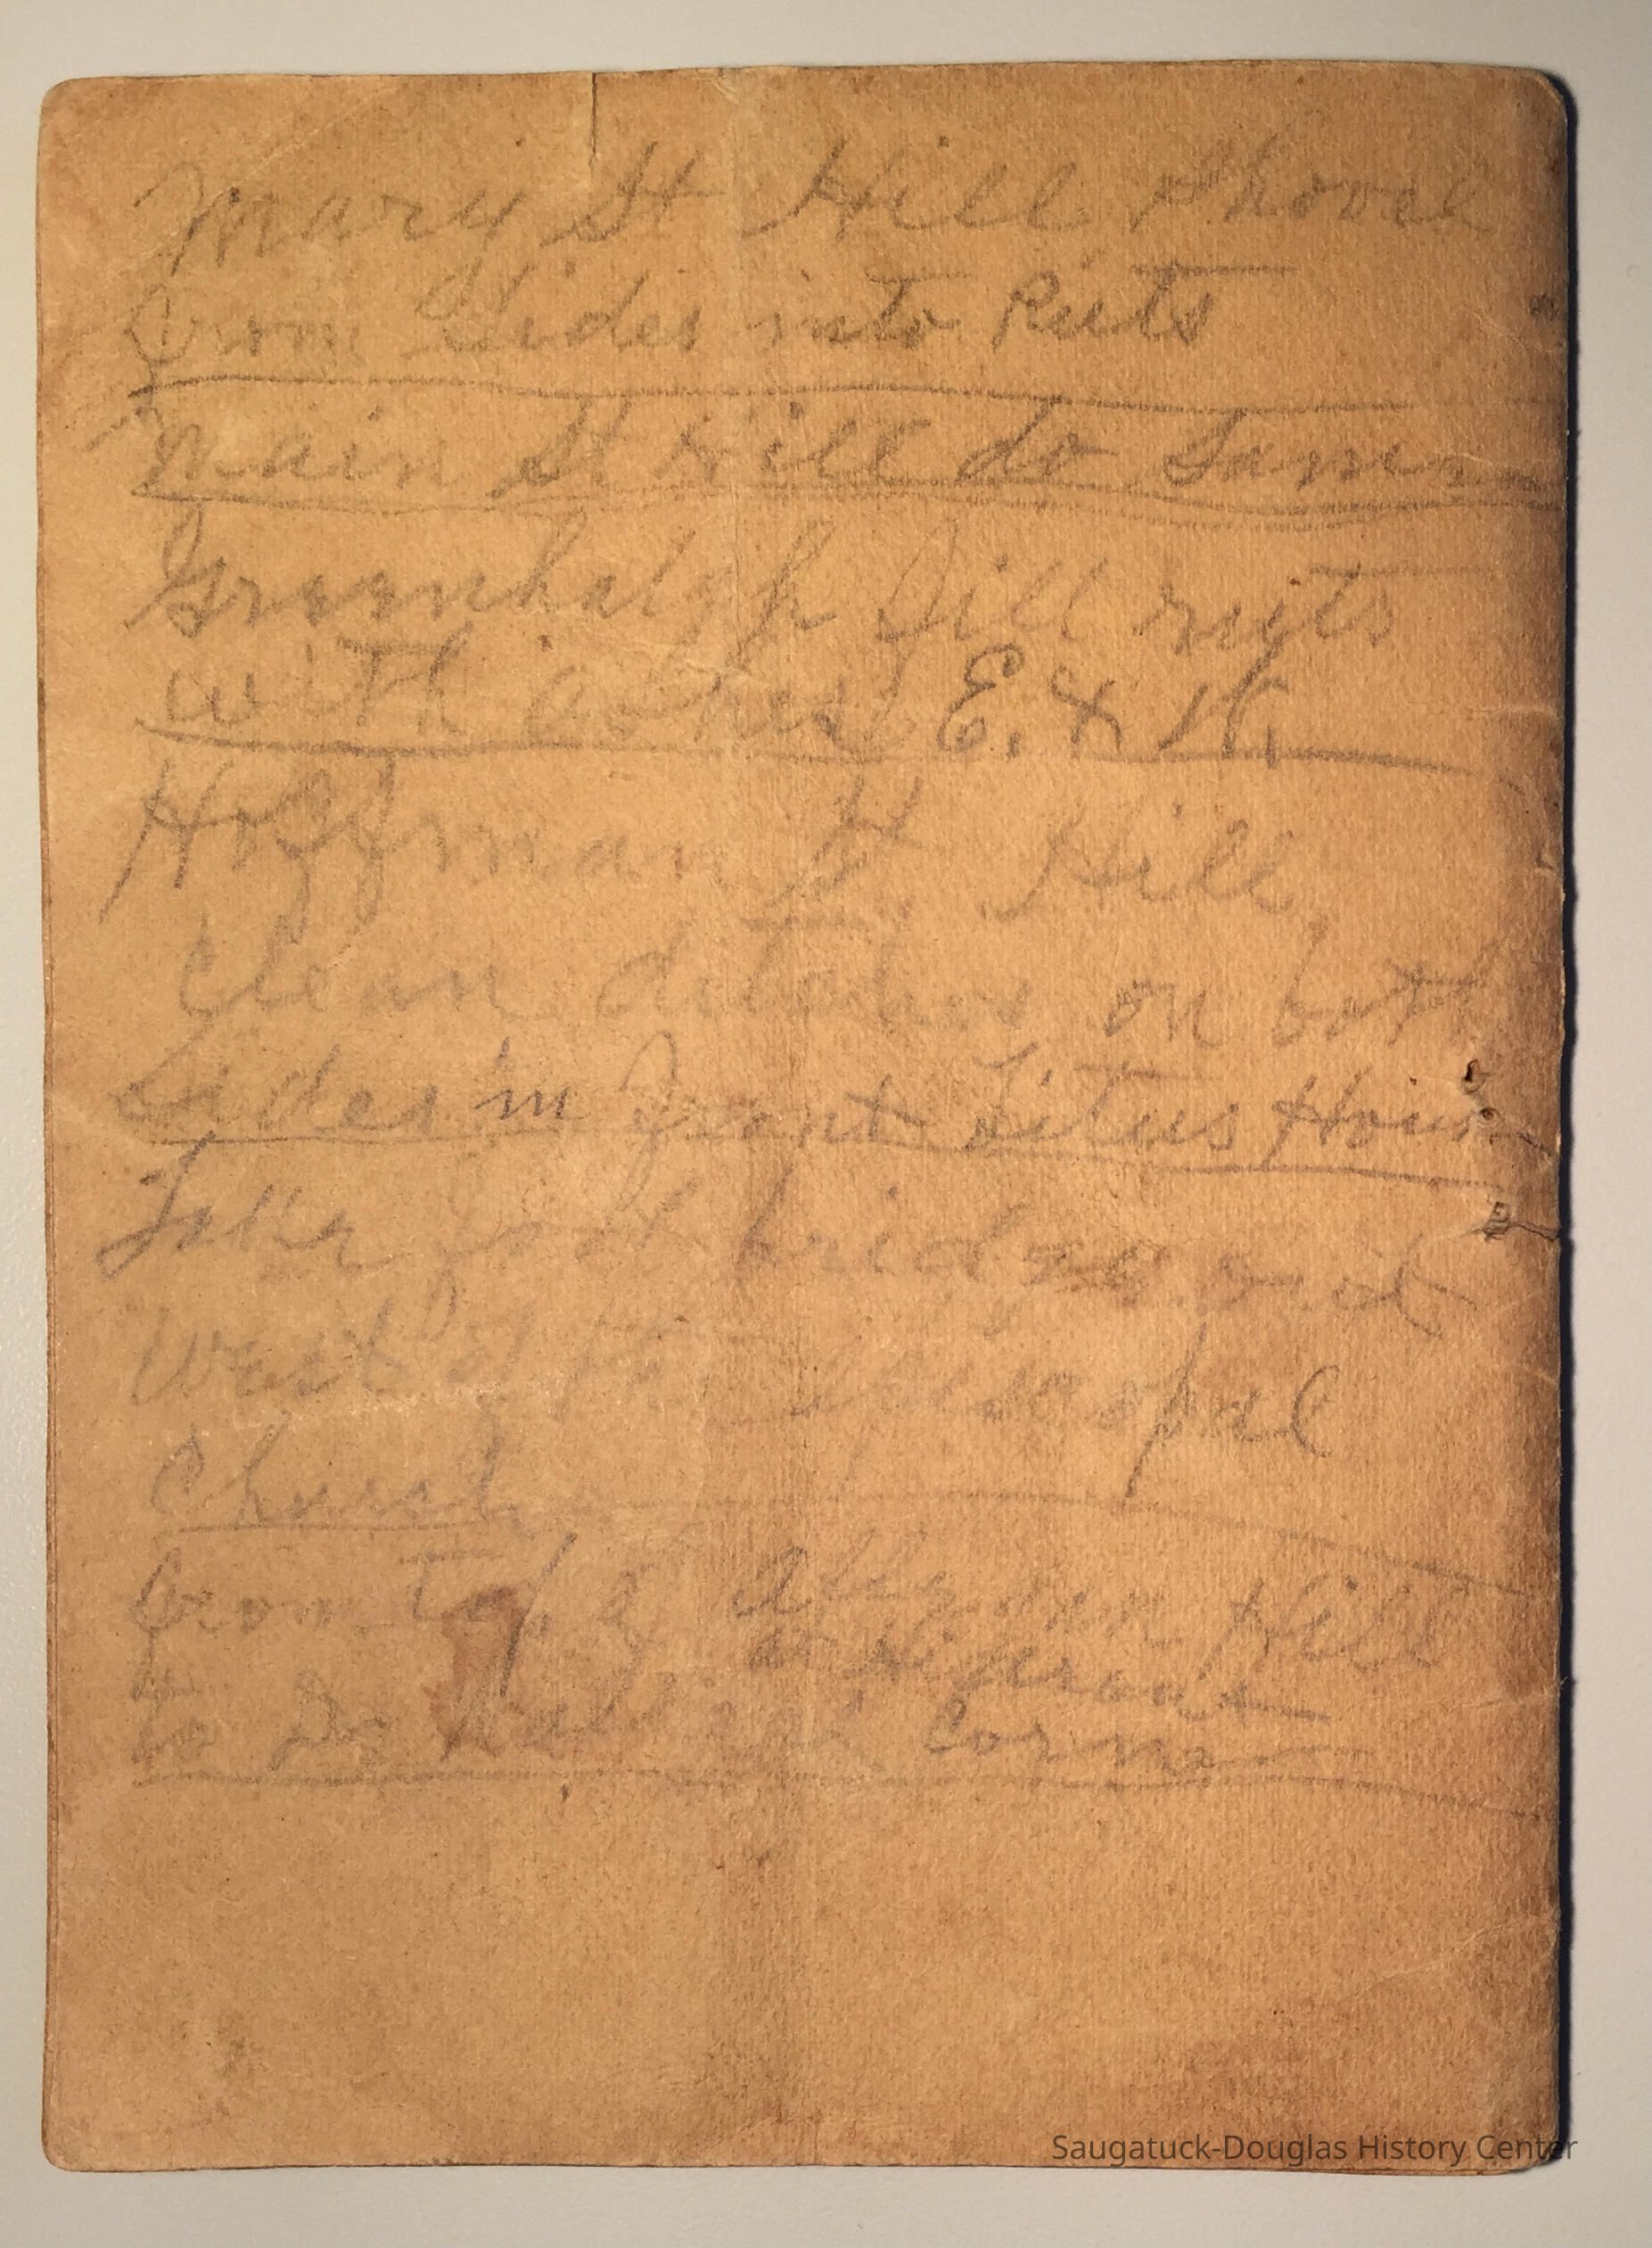 Mary St Hill Shovel
from Sides into Ruts
Main St Hill do Same
Greenhalgh fill ruts
with ashes E. & W.
Hoffman St Hill
Clean ditches on both
Sides in front Titus House
Take foot bridge out
West of the Episcopal
Church
from Top of Allegan Hill
at Hydrant
to Dr Corner
Saugatuck-Douglas History Center